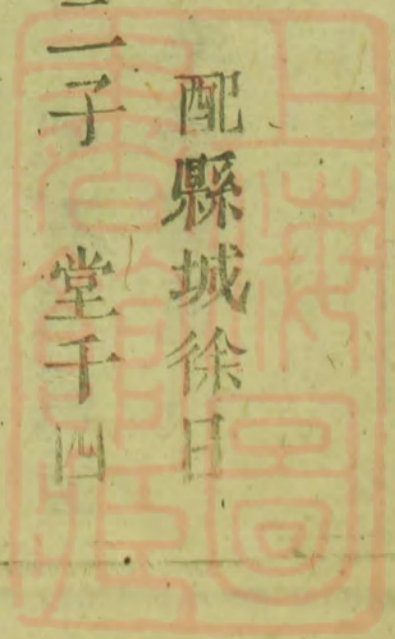 配縣城徐日
二子　堂千四
上海圖書館藏